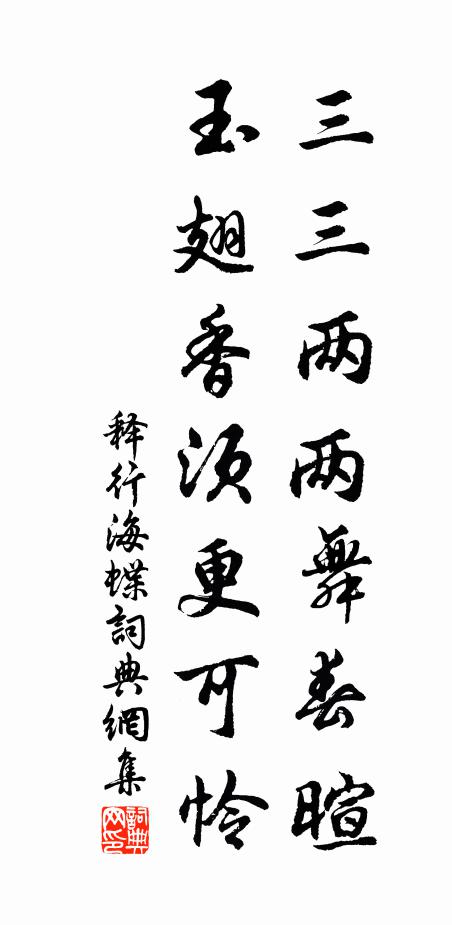 三三两两舞春暄
玉翅香须更可怜
释行海蝶詞典網集
詞典网印